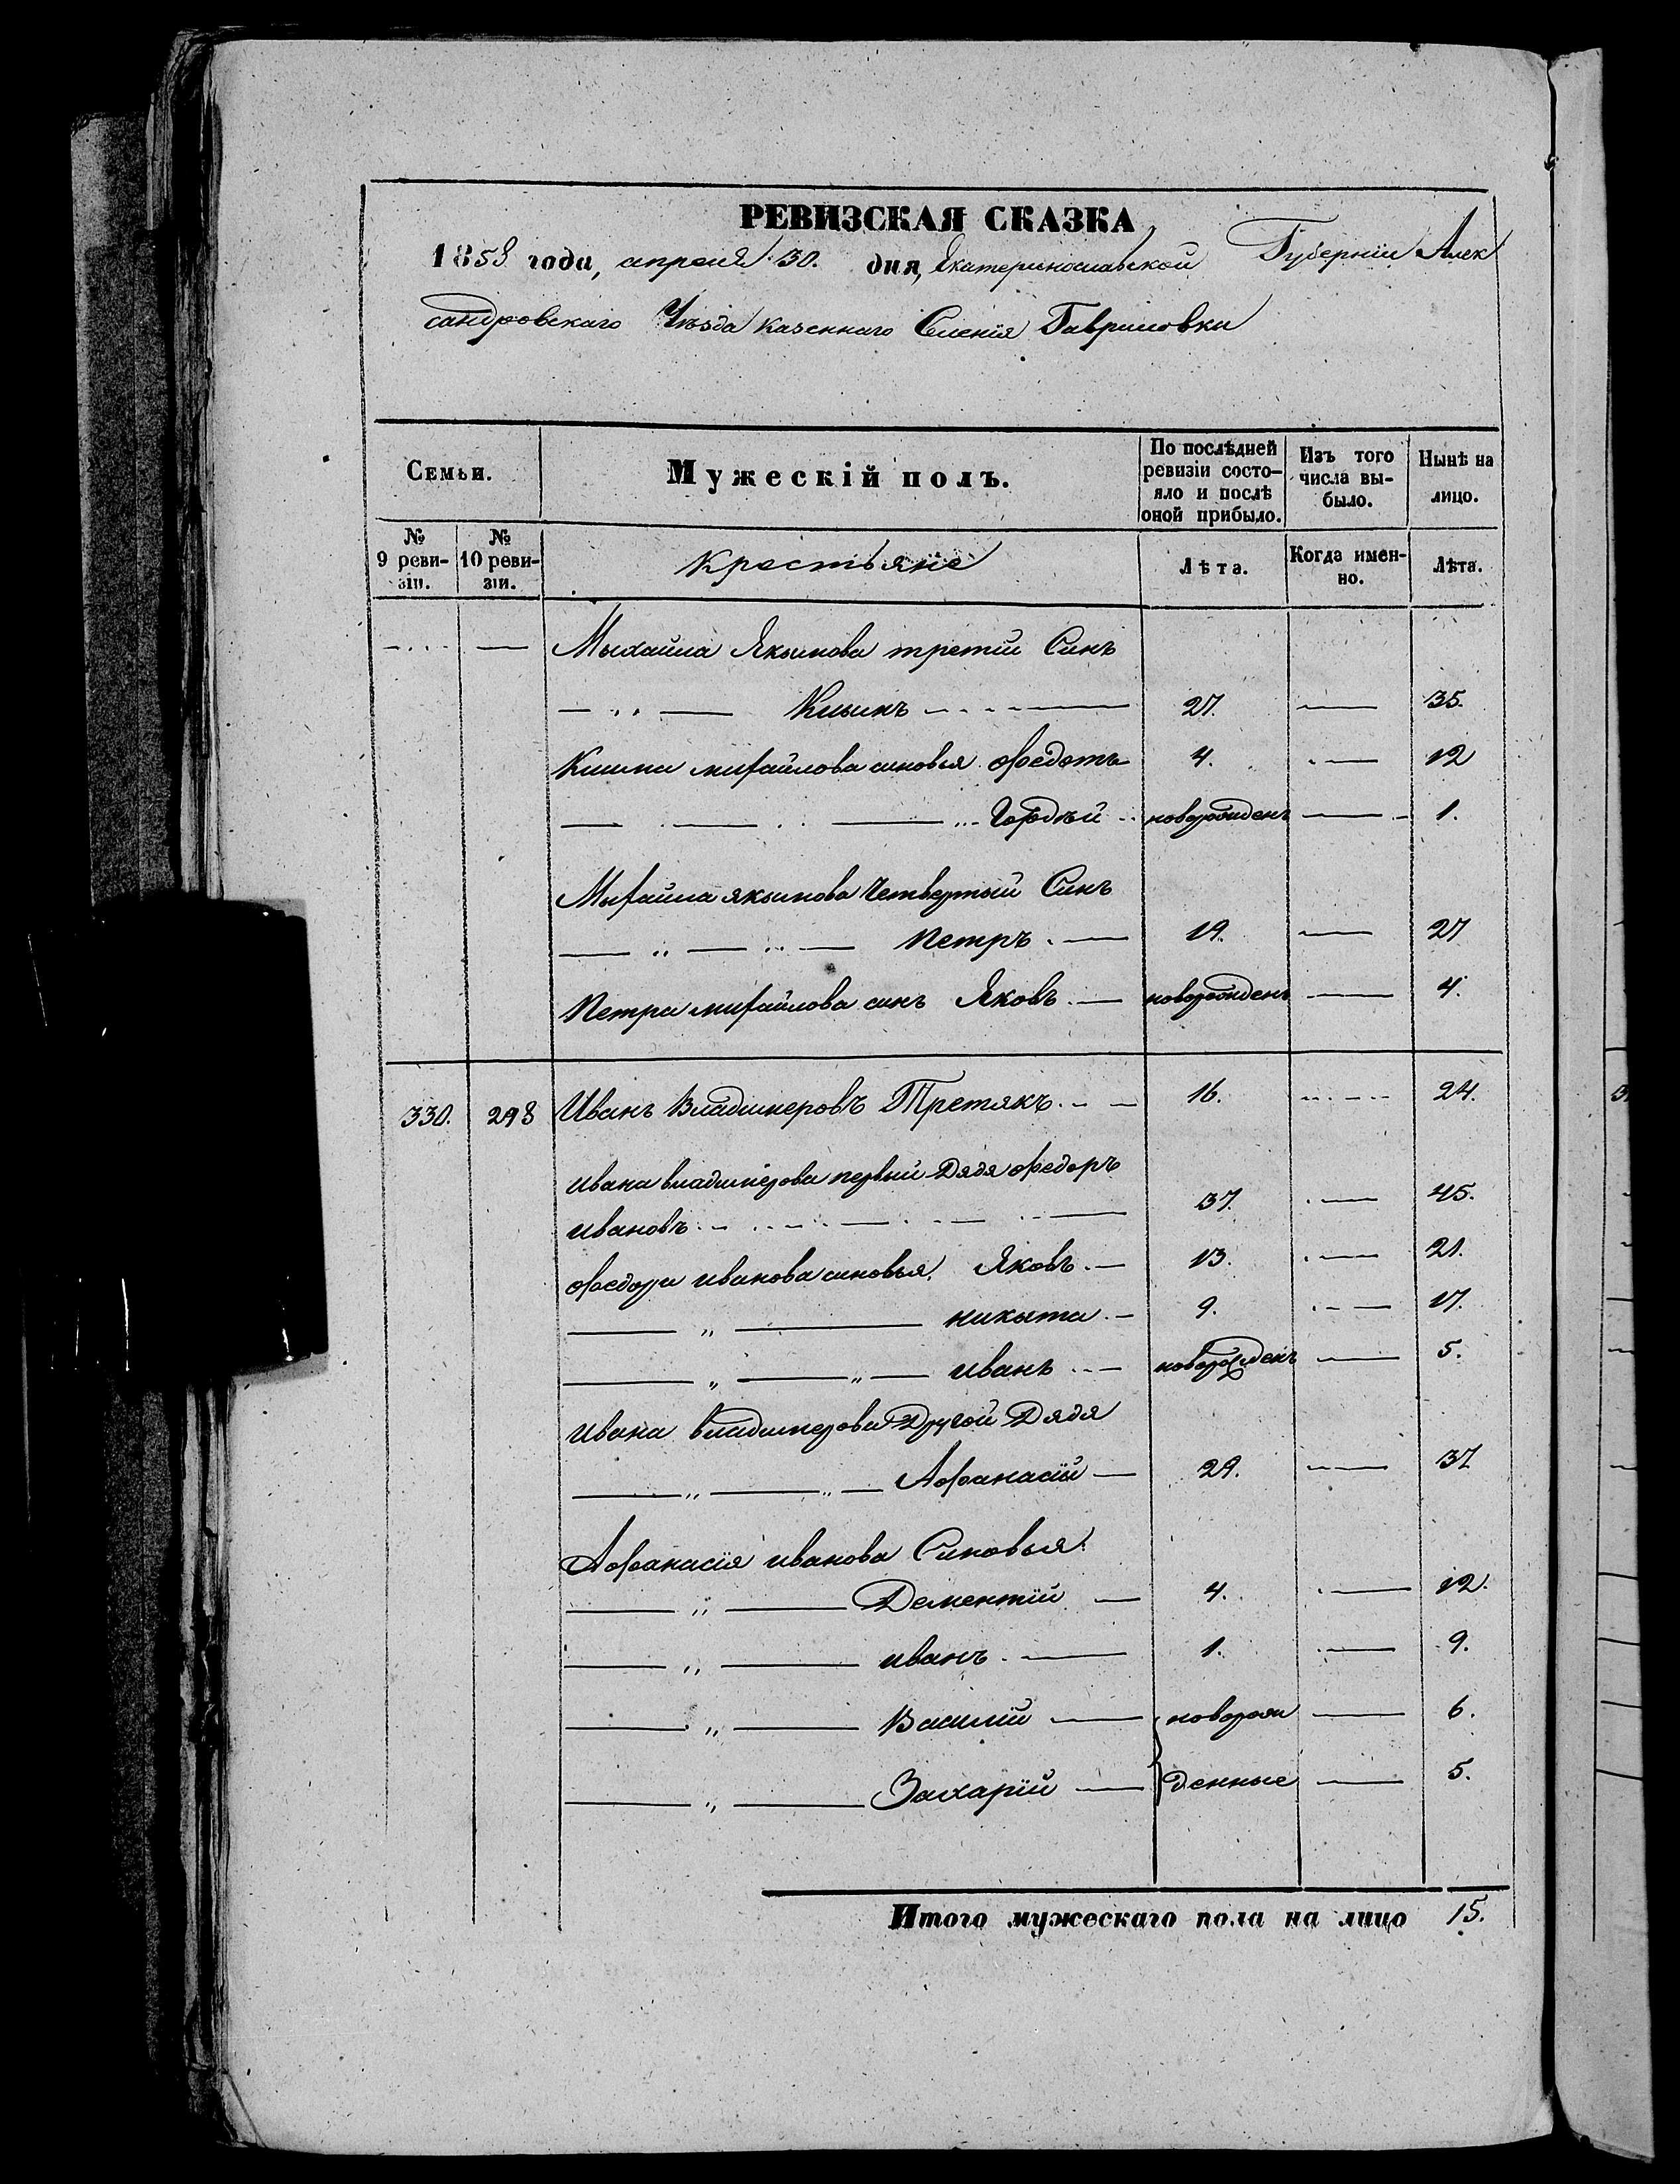 РЕВИЗСКАЯ СКАЗКА
1858 года, апреля 30. дня, Екатериннославской Губернiи Алек
сандровскаго Уѣзда казеннаго Селенiя Гавриловки
Семьи.
Мужескiй полъ.
По послѣдней ревизiи состо-
яло и послѣ
оной прибыло.
Изъ того
числа вы-
было.
Нынѣ на
лицо.
№
9 реви-
зiи.
№
10 реви-
зiи.
Крестьяне
Лѣта.
Когда имен-
но.
Лѣта.
Мыхайла Якымова третiй Синъ
Климъ 27. 35.
Клима михайлова синовья Федотъ 4. 12
Гордѣй новорожденъ 1.
Мыхайла якымова Четвертый Синъ
Петръ 19. 27
Петра михайлова синъ Яковъ новорожденъ 4.
330. 298 Иванъ Владимеровъ Третякъ 16. 24.
Ивана владимерова первый Дядя Федоръ
ивановъ 37. 45.
Федора иванова синовья Яковъ 13. 21.
никыта 9. 17.
иванъ новорожденъ 5.
Ивана Владимерова Другой Дядя
Афанасiй 29. 37
Афанасiя иванова Синовья
Дементiй 4. 12.
иванъ 1. 9.
Василiй новорож 6.
Захарiй денные 5.
Итого мужескаго пола на лицо 15.